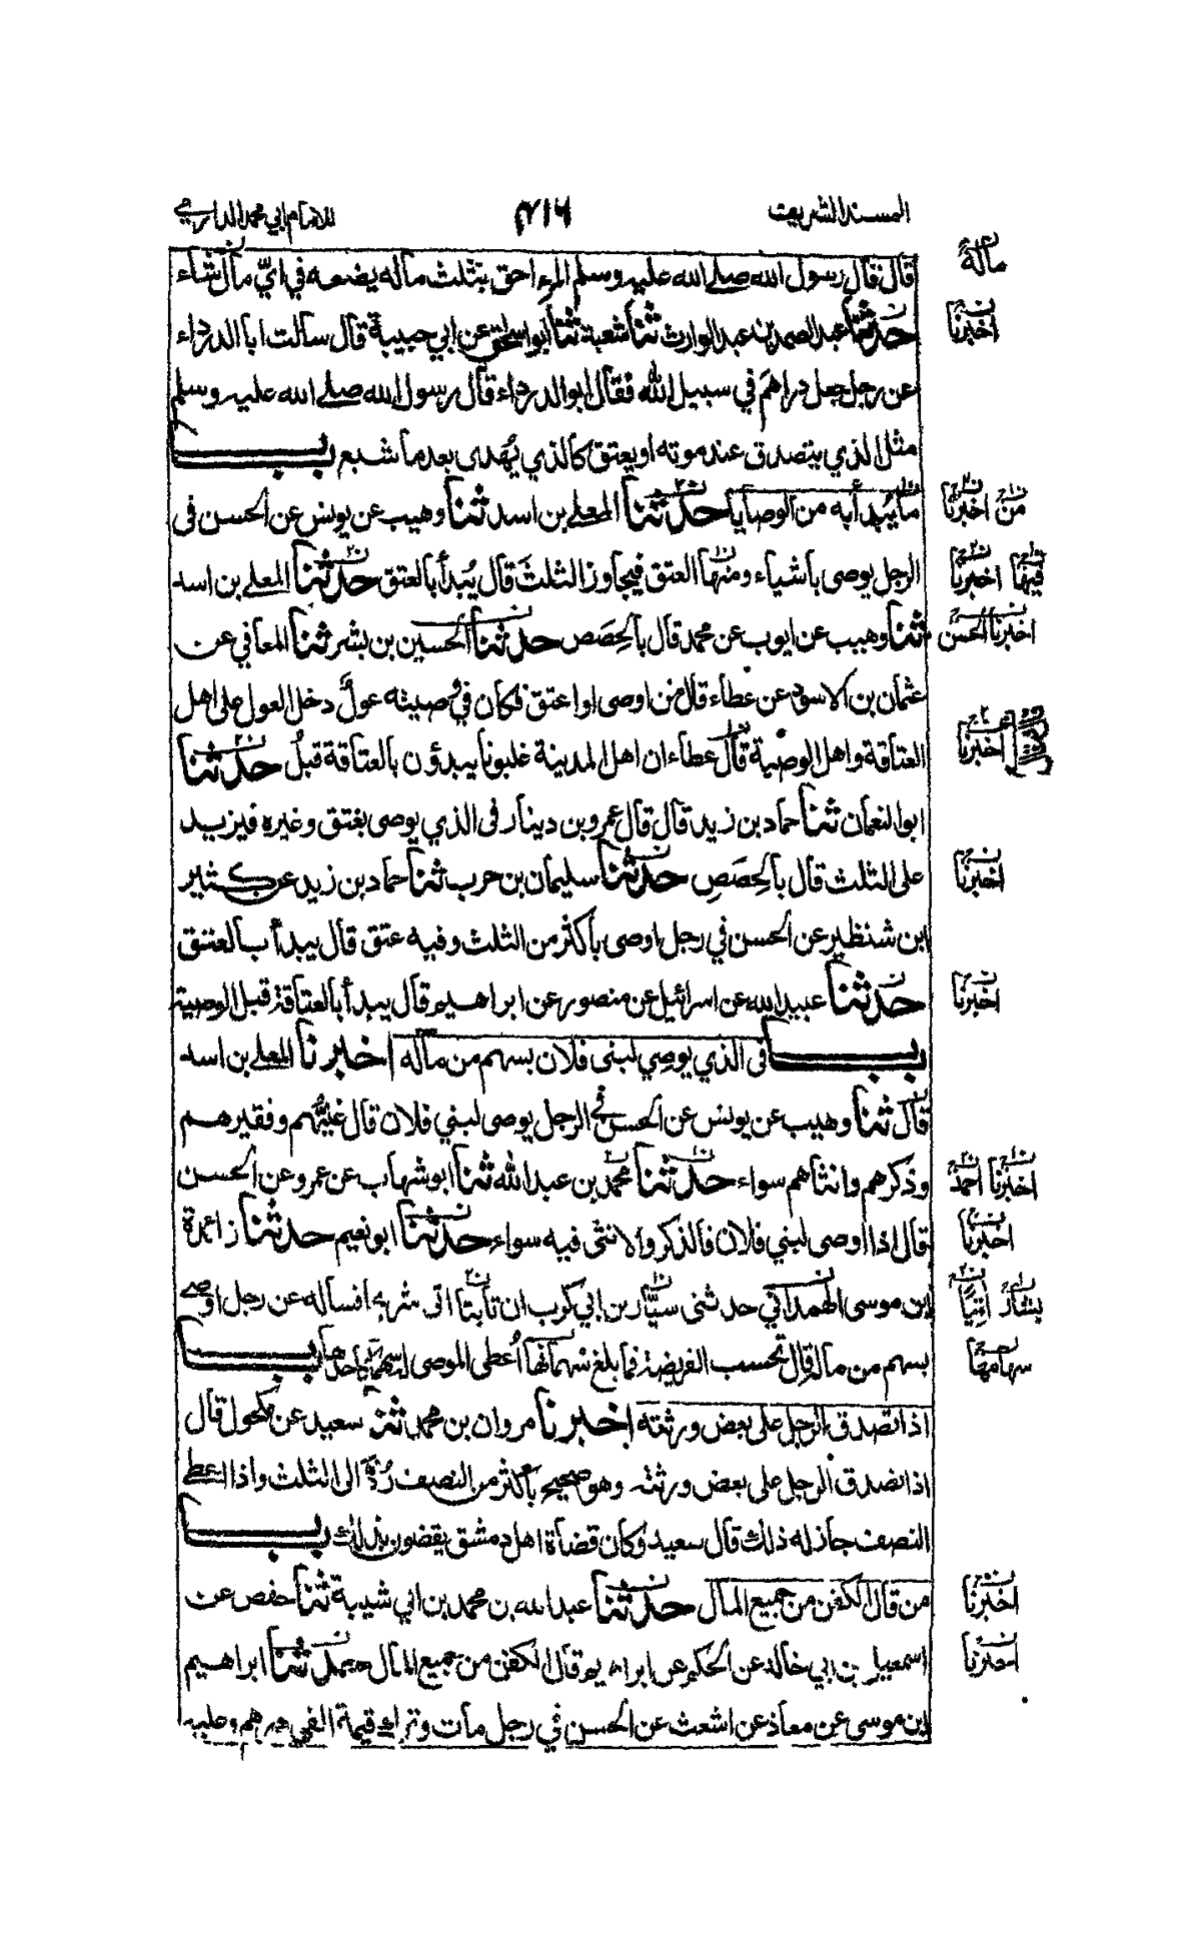 المسند الشريف ٤١٦ للامام ابي محمد الدارمي
قال قال رسول الله صلے الله عليه وسلم المرء احق بثلث ماله يضعه في ايّ ماله شاء
حدثنا عبد الصمد بن عبد الوارث ثنا شعبة ثنا ابو اسحٰق عن ابي حبيبة قال سالت ابا الدرداء
عن رجل جعل دراهم في سبيل الله فقال ابو الدرداء قال رسول الله صلے الله عليه وسلم
مثل الذي يتصدق عند موته او يعتق كالذي يُهدى بعد ما شبع باب
ما يُبدأ به من الوصايا حدثنا المعلے بن اسد ثنا وهيب عن يونس عن الحسن فى
الرجل يوصى باشياء ومنها العتق فيجاوز الثلث قال يُبدأ بالعتق حدثنا المعلے بن اسد
ثنا وهيب عن ايوب عن محمد قال بالحِصَص حدثنا الحسين بن بشر ثنا المعافي عن
عثمان بن الاسود عن عطاء قال من اوصى او اعتق فكان في وصيته عولٌ دخل العول على اهل
العتاقة واهل الوصية قال عطاء ان اهل المدينة غلبونا يبدؤن بالعتاقة قبلُ حدثنا
ابو النعمان ثنا حماد بن زيد قال قال عمرو بن دينار فى الذي يوصى بعتق وغيره فيزيد
على الثلث قال بالحِصَصِ حدثنا سليمان بن حرب ثنا حماد بن زيد عن كثير
ابن شنظير عن الحسن في رجل اوصى باكثر من الثلث وفيه عتق قال يبدأ بالعتق
حدثنا عبيد الله عن اسرائيل عن منصور عن ابراهيم قال يبدأ بالعتاقة قبل الوصية
باب فى الذي يوصِي لبنى فلان بسهم من ماله اخبرنا المعلے بن اسد
قال ثنا وهيب عن يونس عن الحسن في الرجل يوصى لبني فلان قال غنيُّهم وفقيرهم
وذكرهم وانثاهم سواء حدثنا محمد بن عبد الله ثنا ابو شهاب عن عمرو عن الحسن
قال اذا اوصى لبني فلان فالذكر والانثى فيه سواء حدثنا ابو نعيم حدثنا زائدة
ابن موسى الهمداني حدثنى سيّار بن ابي كرب ان تابتا اتى شريحا فساله عن رجل اوصے
بسهم من ماله قال تحسب الفريضة فما بلغ سهمانها اُعطى الموصى له سهما كاحدها باب
اذا تصدق الرجل على بعض ورثته اخبرنا مروان بن محمد ثنا سعيد عن مكحول قال
اذا تصدق الرجل على بعض ورثته وهو صحيح باكثر من النصف رُدّ الى الثلث واذا اعطے
النصف جاز له ذلك قال سعيد وكان قضاة اهل دمشق يقضون بذلك باب
من قال الكفن من جميع المال حدثنا عبد الله بن محمد بن ابي شيبة ثنا حفص عن
اسمعيل بن ابي خالد عن الحكم عن ابراهيم قال الكفن من جميع المال حدثنا ابراهيم
ابن موسى عن معاذ عن اشعث عن الحسن في رجل مات وترك قيمة الفي درهم وعليه
مالهٗ
اخبرنا
من اخبرنا
فيها اخبرنا
اخبرنا الحسن
اخبرنا
اخبرنا
اخبرنا
اخبرنا احمد
اخبرنا
بشار
سهامها
اخبرنا
اخبرنا